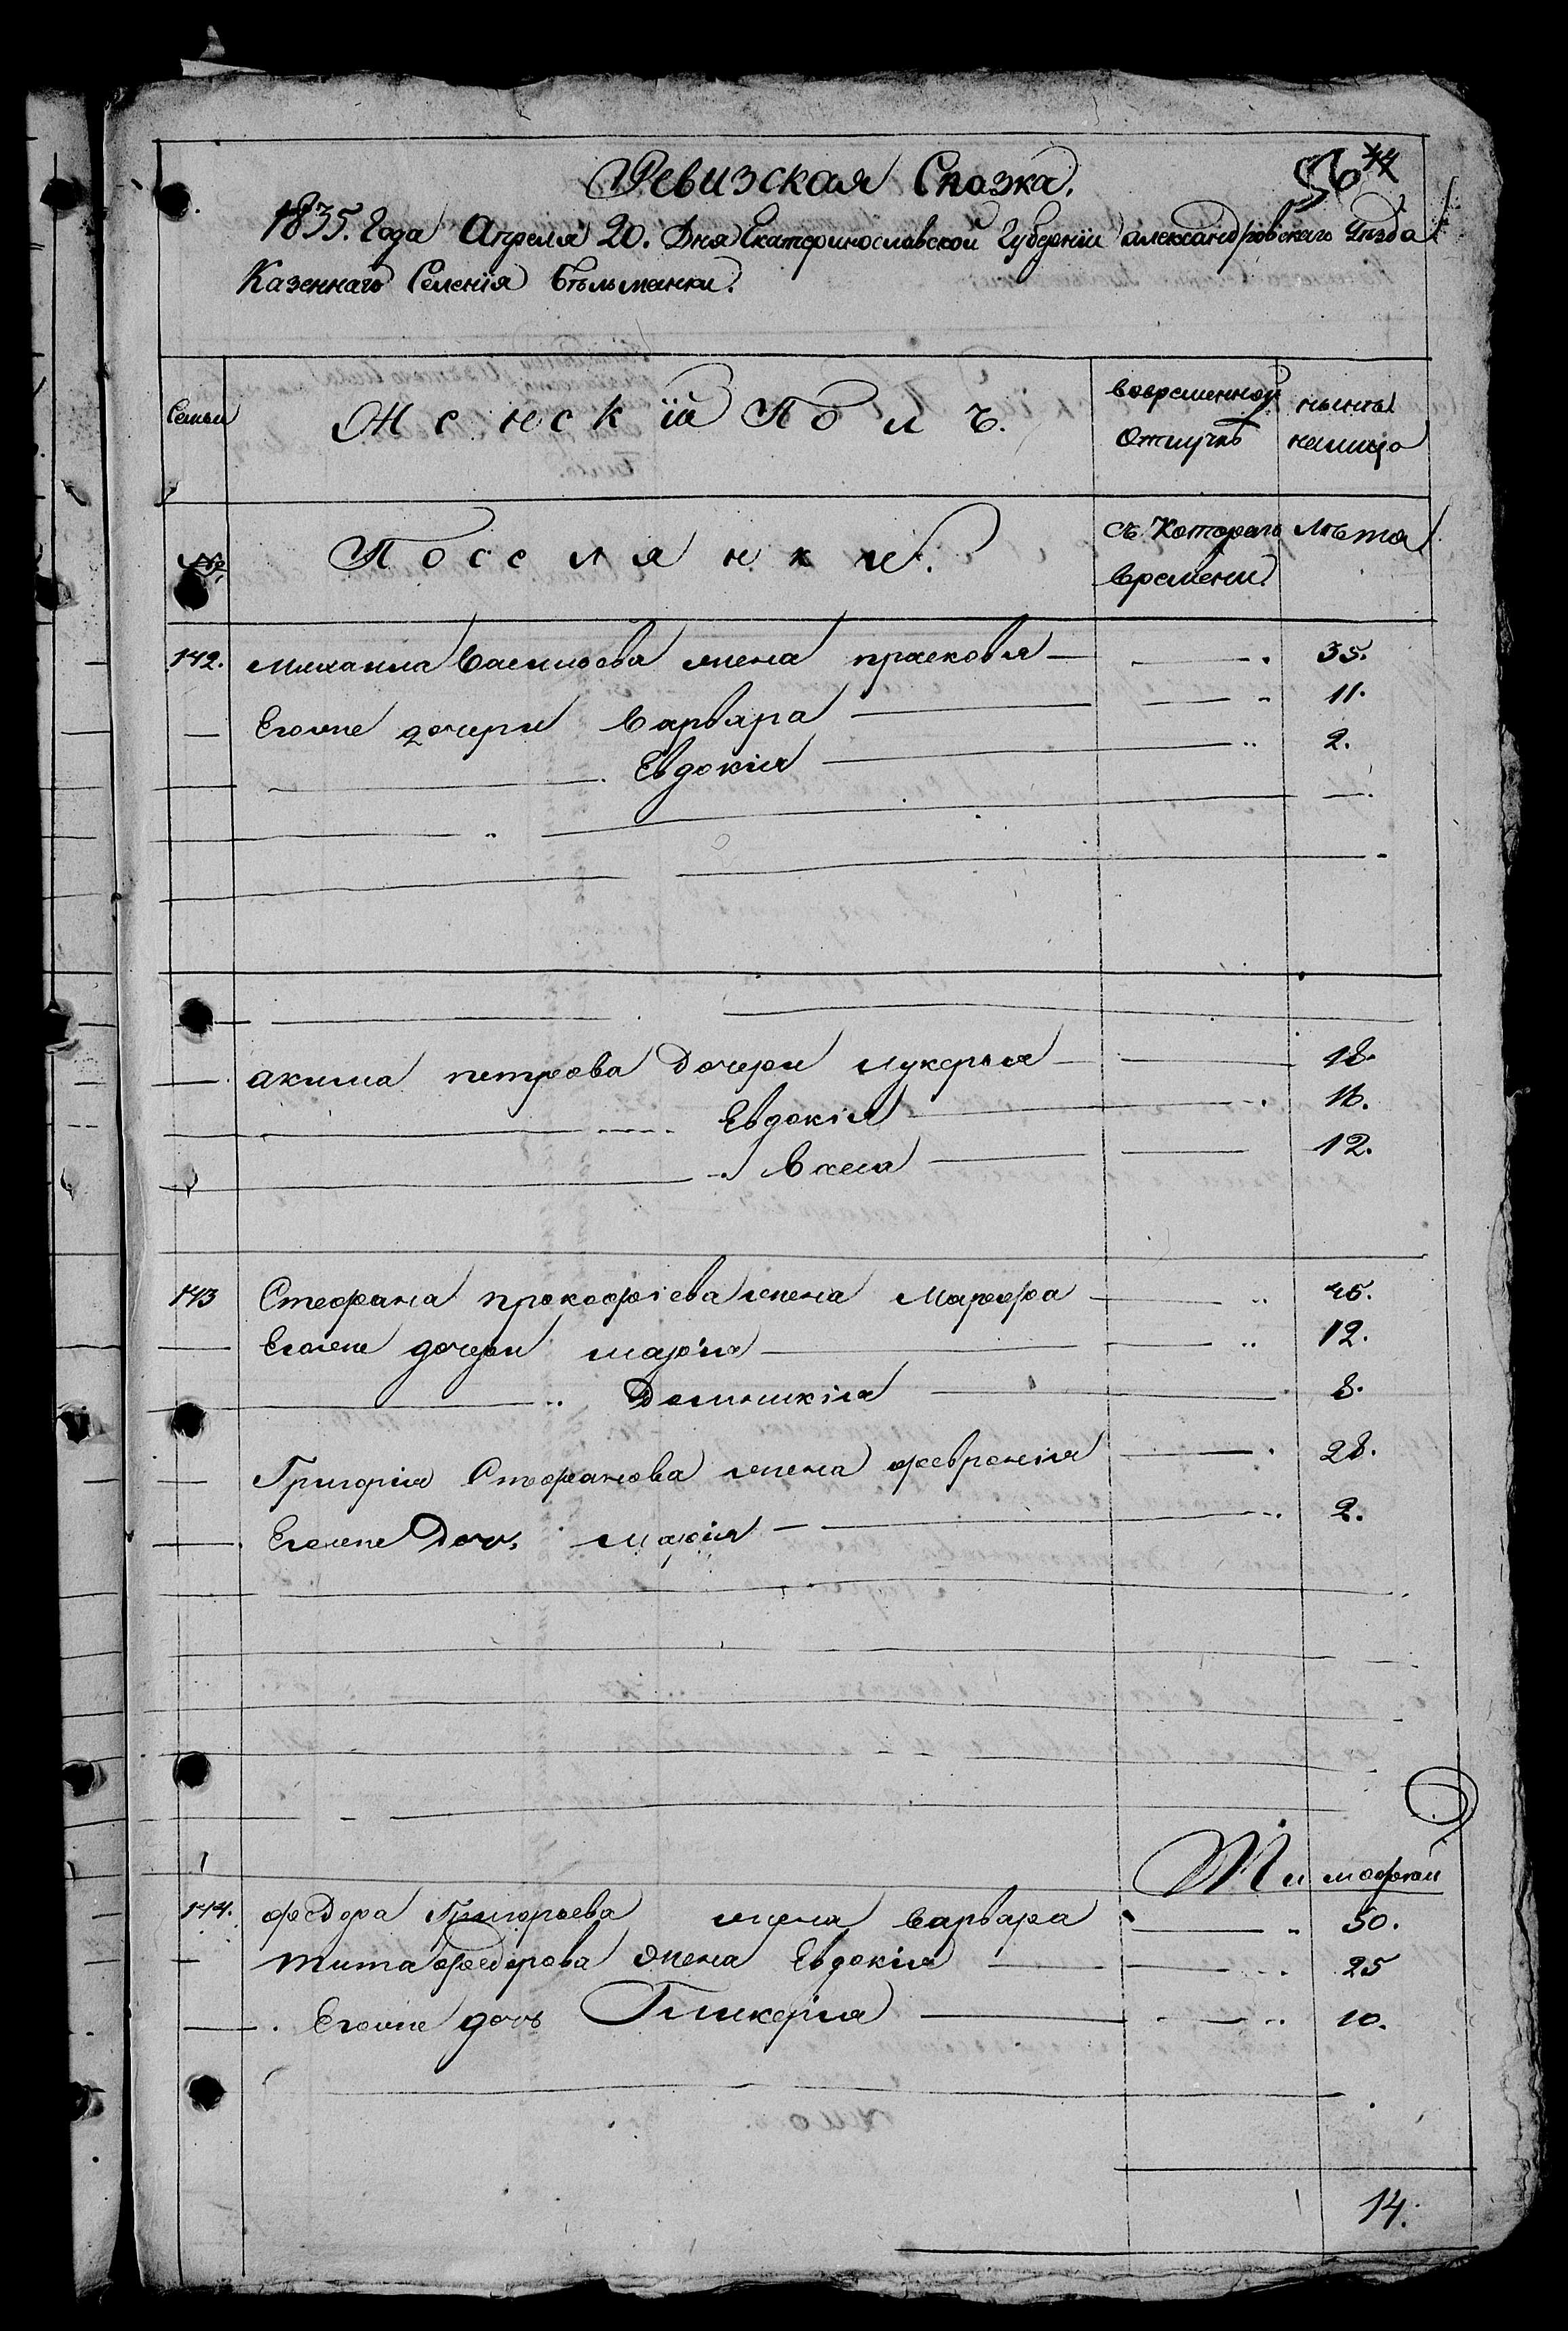 Ревизская Сказка.
56 44
1835. Года Апреля 20. Дня Екатеринославской Губернїи александровскаго Уѣзда
Казеннаго Селенїя Бѣльманки.
Семьи
Женскїй Полъ.
вовременной отлучкѣ
нынѣ налицо
№
Поселянки.
съ Котораго времени
Лѣта
142. Михаила васильева жена прасковья 35.
Егоже дочери варвара 11.
Евдокія 2.
акима петрова Дочери лукерья 18.
Евдокія 16.
васса 12.
143 Стефана прокофіева жена Марфа 46.
Егоже дочери марія 12.
Домникія 8.
Григорія Стефанова жена февронія 28.
Егоже Дочь марія 2.
Тимофѣй
144. федора Григорьева жена варвара 50.
тита федорова жена Евдокія 25
Егоже дочь Гликерія 10.
14.